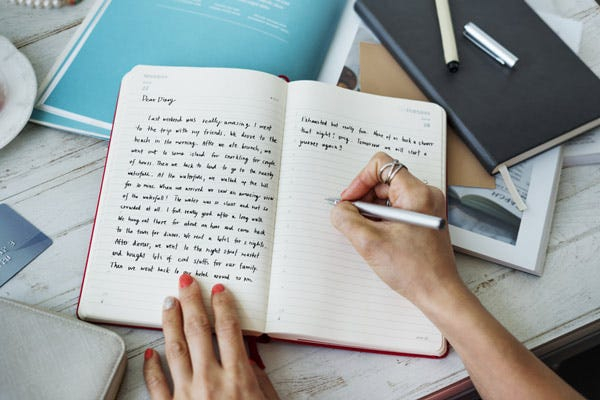 Dear Diary,
Last weekend was really amazing. I went
to the trip with my friends. We drove to the
beach in the morning. After we ate brunch, we
went out to some island for snorkling for couple
of hours. Then we back to land to go to the nearby
waterfall. At the waterfall, we walked up the hill
for 30 mins. When we arrived we saw an amazing view
of the waterfall! The water was so clear and not so
crowded at all. I felt really good after a long walk
We hung out there for about an hour and came back
to the town for dinner. We rent a hotel for 2 nights.
After dinner, we went to the night street market
and bought lots of cool stuffs for our family.
Then we went back to hotel around 10 pm.
Exhausted but really fun. None of us took a shower
that night! Tomorrow we will start a
journey again!